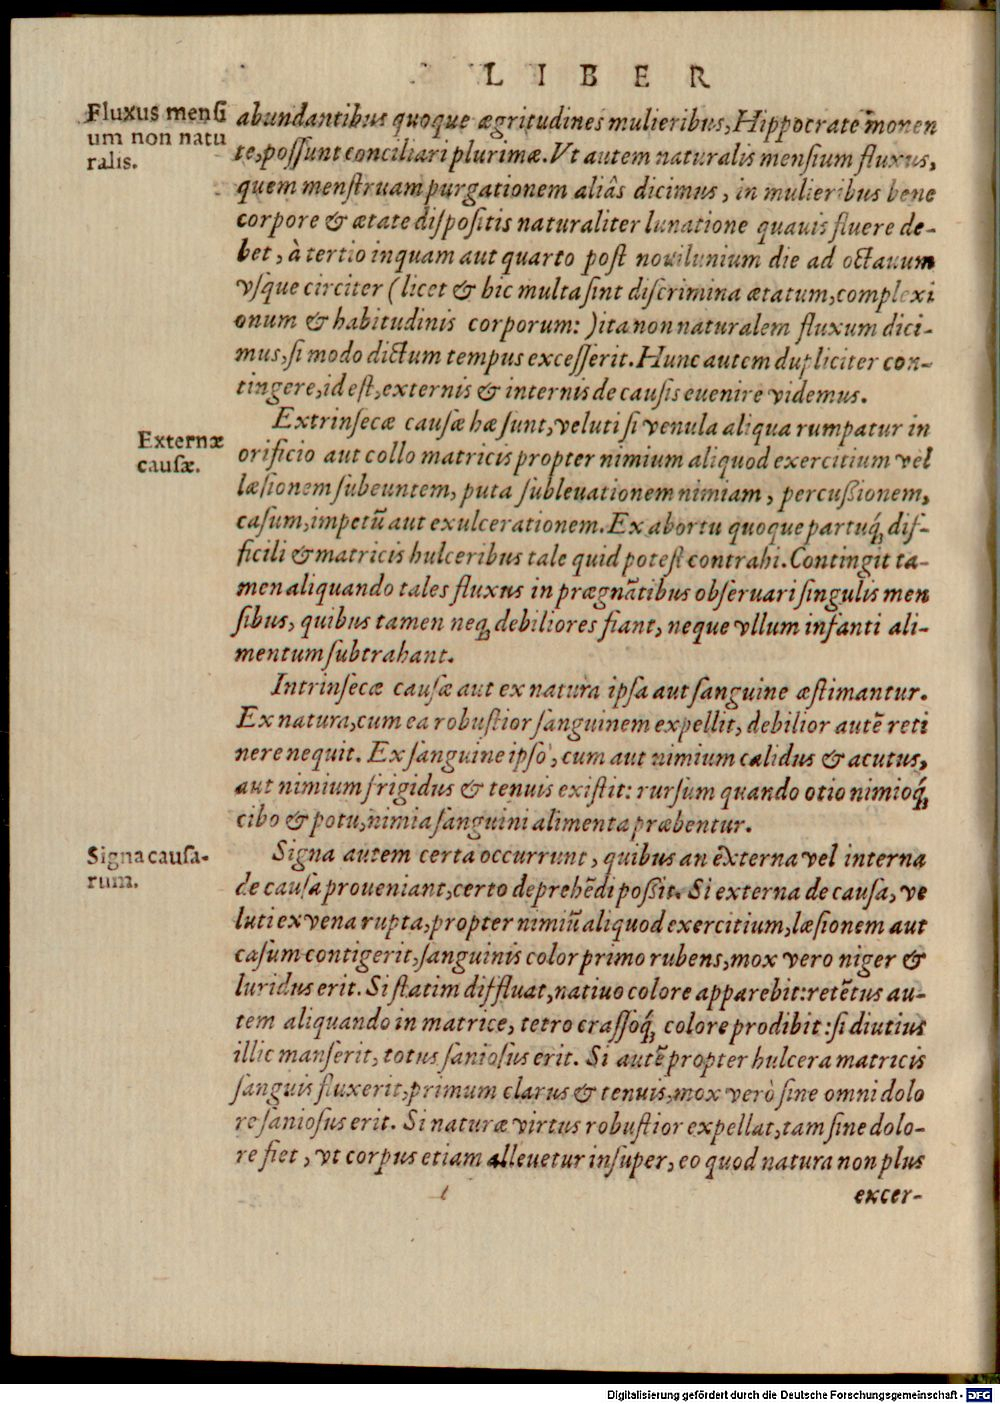 LIBER
Fluxus mensi
um non natu
ralis.
abundantibus quoque ægritudines mulieribus, Hippocrate monen
te, possunt conciliari plurimæ. Vt autem naturalis mensium fluxus,
quem menstruam purgationem aliâs dicimus, in mulieribus bene
corpore & ætate dispositis naturaliter lunatione quauis fluere de-
bet, à tertio inquam aut quarto post nouilunium die ad octauum
vsque circiter (licet & hic multa sint discrimina ætatum, complexi
onum & habitudinis corporum:) ita non naturalem fluxum dici-
mus, si modo dictum tempus excesserit. Hunc autem dupliciter con-
tingere, id est, externis & internis de causis euenire videmus.
Externæ
causæ.
Extrinsecæ causæ hæ sunt, veluti si venula aliqua rumpatur in
orificio aut collo matricis propter nimium aliquod exercitium vel
læsionem subeuntem, puta subleuationem nimiam, percußionem,
casum, impetũ aut exulcerationem. Ex abortu quoque partuq́; dif-
ficili & matricis hulceribus tale quid potest contrahi. Contingit ta-
men aliquando tales fluxus in prægnãtibus obseruari singulis men
sibus, quibus tamen neq; debiliores fiant, neque vllum infanti ali-
mentum subtrahant.
Intrinsecæ causæ aut ex natura ipsa aut sanguine æstimantur.
Ex natura, cum ea robustior sanguinem expellit, debilior autẽ reti
nere nequit. Ex sanguine ipso, cum aut nimium calidus & acutus,
aut nimium frigidus & tenuis existit: rursum quando otio nimioq́;
cibo & potu, nimia sanguini alimenta præbentur.
Signa causa-
rum.
Signa autem certa occurrunt, quibus an externa vel interna
de causa proueniant, certo deprehẽdi poßit. Si externa de causa, ve
luti ex vena rupta, propter nimiũ aliquod exercitium, læsionem aut
casum contigerit, sanguinis color primo rubens, mox vero niger &
luridus erit. Si statim diffluat, natiuo colore apparebit: retẽtus au-
tem aliquando in matrice, tetro crassoq́; colore prodibit: si diutius
illic manserit, totus saniosus erit. Si autẽ propter hulcera matricis
sanguis fluxerit, primum clarus & tenuis, mox verò sine omni dolo
re saniosus erit. Si naturæ virtus robustior expellat, tam sine dolo-
re fiet, vt corpus etiam alleuetur insuper, eo quod natura non plus
excer-
Digitalisierung gefördert durch die Deutsche Forschungsgemeinschaft - DFG